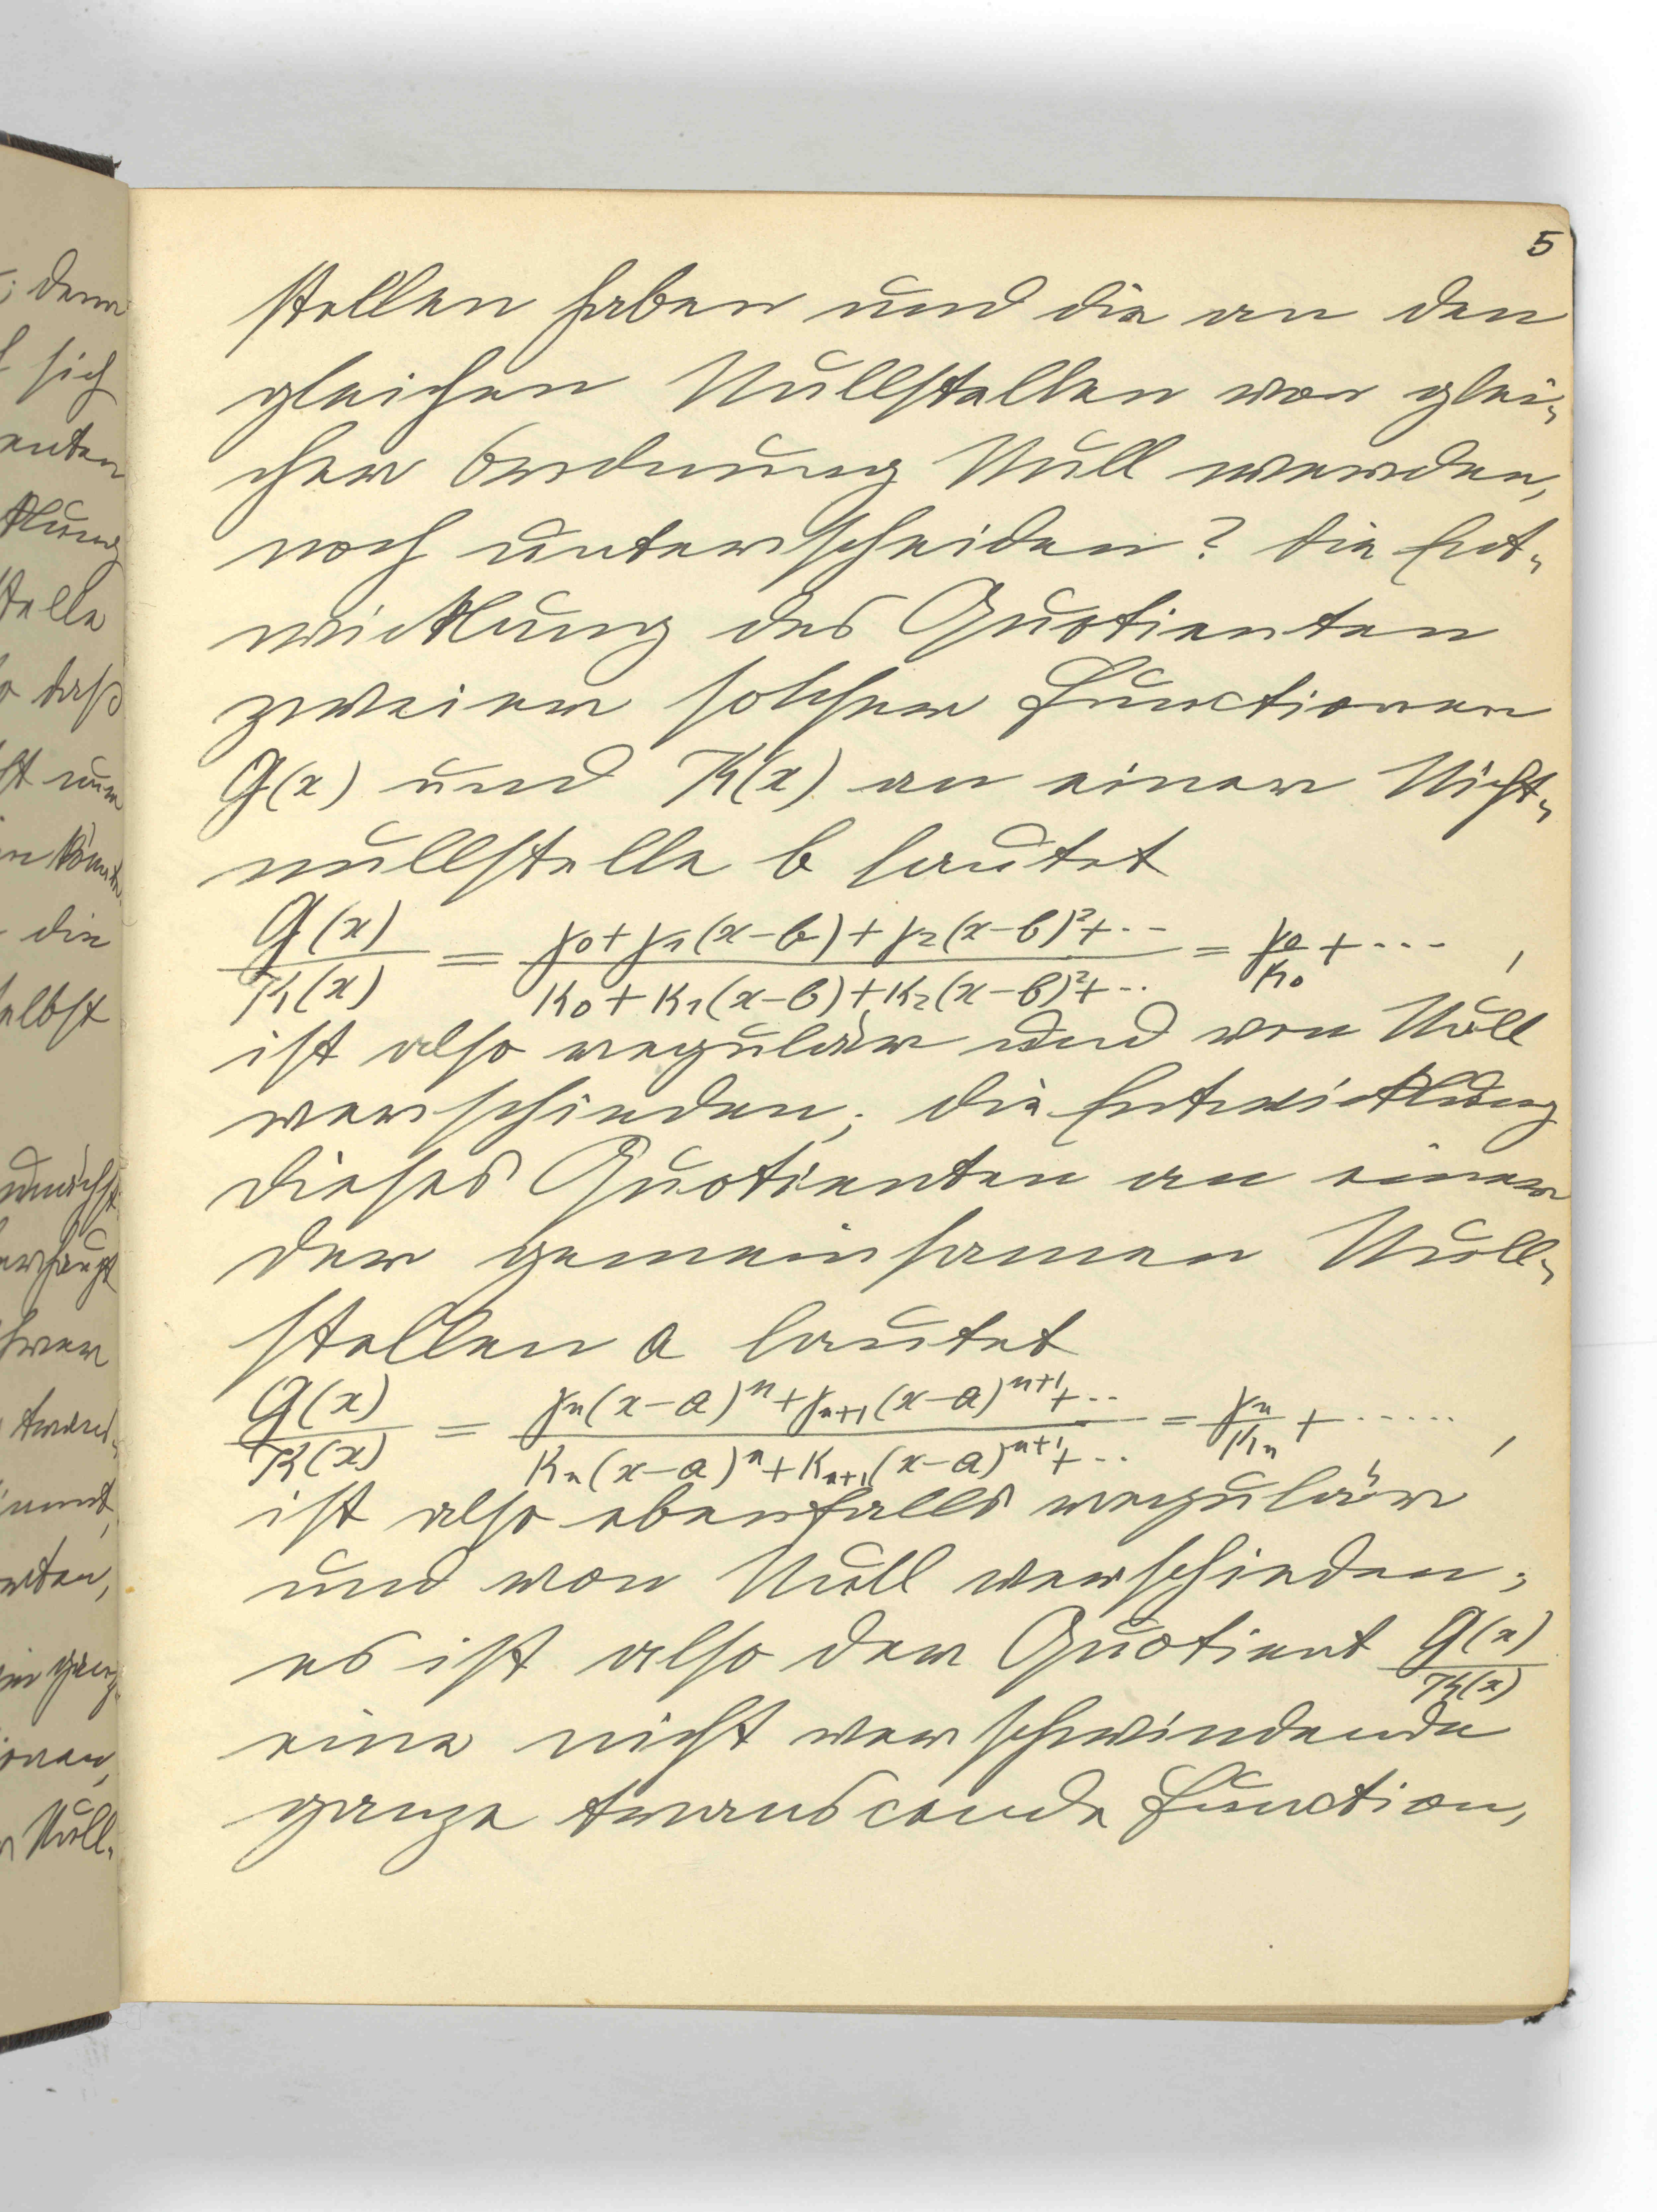 5
stellen haben und die an den
gleichen Nullstellen von glei-
cher Ordnung Null werden,
noch unterscheiden? Die Ent-
wicklung des Quotienten
zweier solcher Functionen
G(x) und K(x) an einer Nicht-
nullstelle b lautet
G(x)/K(x) = (γ₀+γ₁(x-b)+γ₂(x-b)²+···)/(κ₀+κ₁(x-b)+κ₂(x-b)²+···) = γ₀/κ₀ + ···· ,
ist also regulär und von Null
verschieden; die Entwicklung
dieses Quotienten an einer
der gemeinsamen Null-
stellen a lautet
G(x)/K(x) = (γₙ(x-a)ⁿ+γₙ₊₁(x-a)ⁿ⁺¹+···)/(κₙ(x-a)ⁿ+κₙ₊₁(x-a)ⁿ⁺¹+···) = γₙ/κₙ + ······ ,
ist also ebenfalls regulär
und von Null verschieden;
es ist also der Quotient G(x)/K(x)
eine nicht verschwindende
ganze transcende Function,